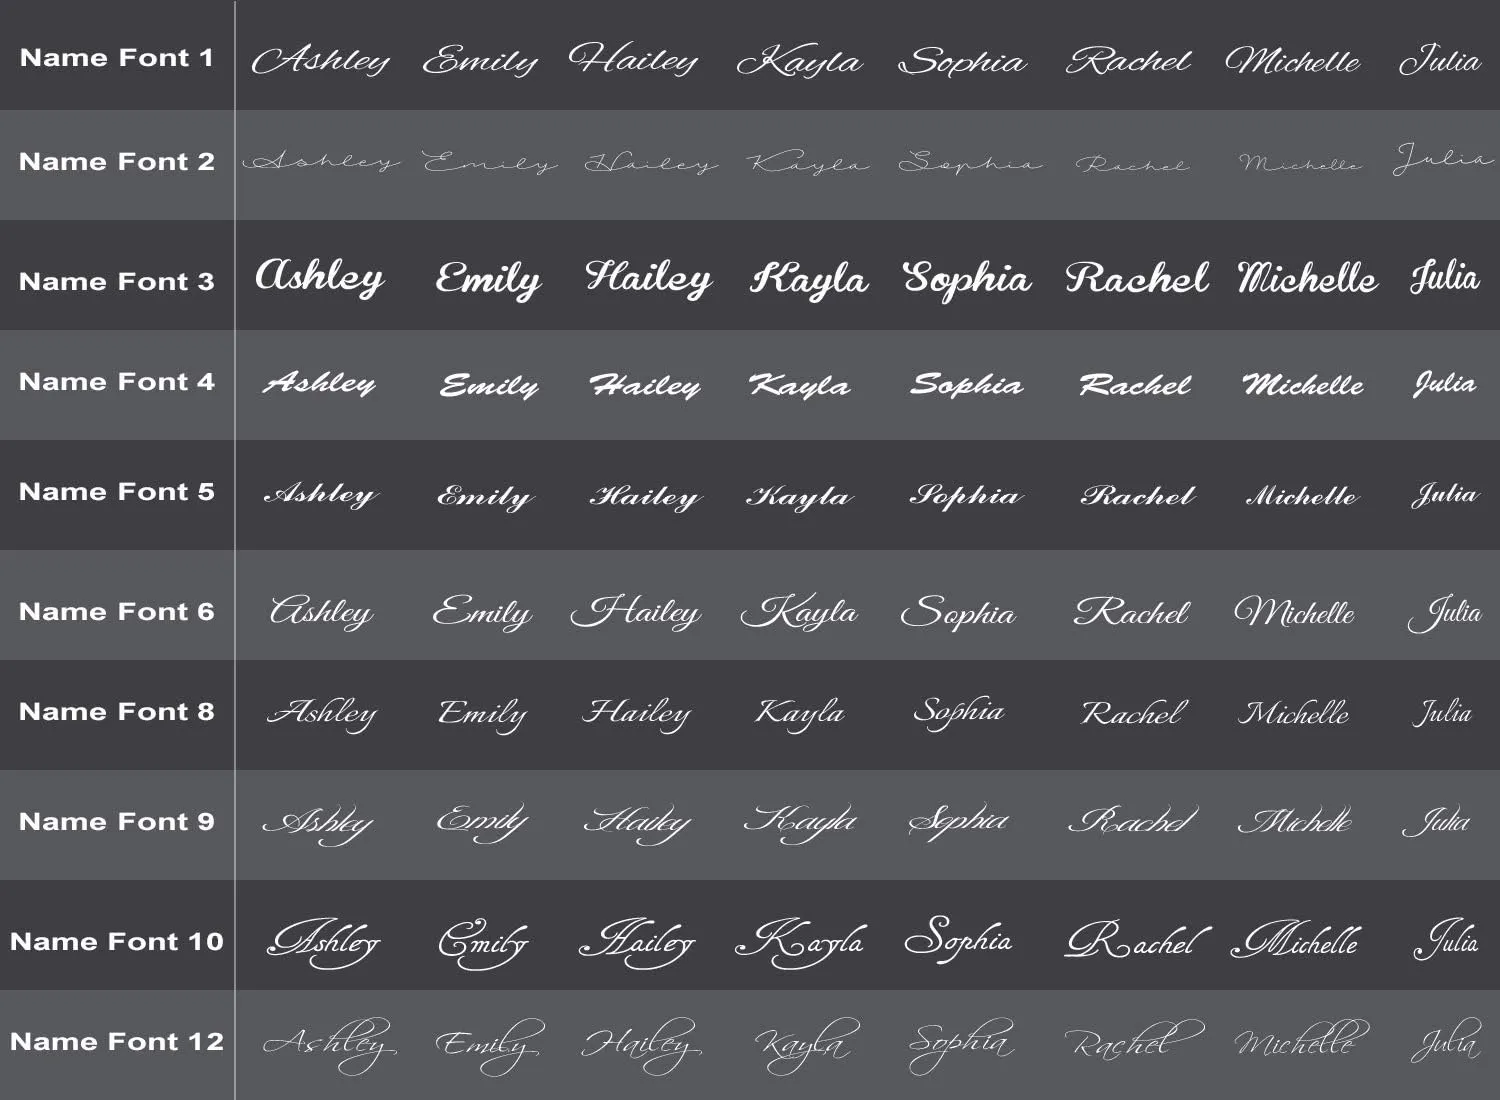 Name Font 1 Ashley Emily Hailey Kayla Sophia Rachel Michelle Julia
Name Font 2 Ashley Emily Hailey Kayla Sophia Rachel Michelle Julia
Name Font 3 Ashley Emily Hailey Kayla Sophia Rachel Michelle Julia
Name Font 4 Ashley Emily Hailey Kayla Sophia Rachel Michelle Julia
Name Font 5 Ashley Emily Hailey Kayla Sophia Rachel Michelle Julia
Name Font 6 Ashley Emily Hailey Kayla Sophia Rachel Michelle Julia
Name Font 8 Ashley Emily Hailey Kayla Sophia Rachel Michelle Julia
Name Font 9 Ashley Emily Hailey Kayla Sophia Rachel Michelle Julia
Name Font 10 Ashley Emily Hailey Kayla Sophia Rachel Michelle Julia
Name Font 12 Ashley Emily Hailey Kayla Sophia Rachel Michelle Julia